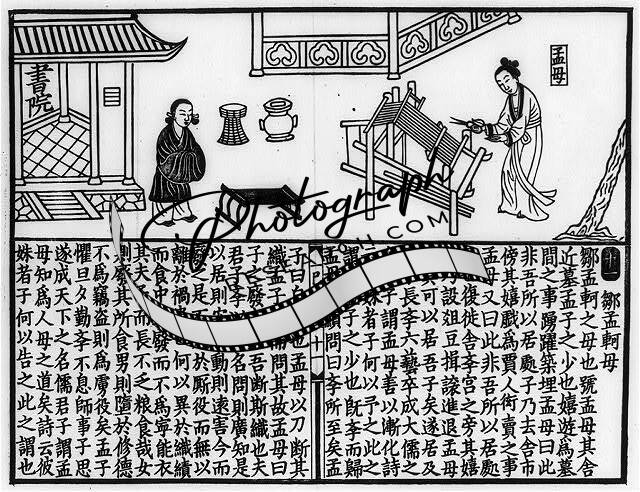 書院
孟母
鄒孟軻母
鄒孟軻之母也號孟母其舍
近墓孟子之少也嬉遊為墓
間之事踴躍築埋孟母曰此
非吾所以居處子乃去舍市
傍其嬉戲為賈人衒賣之事
孟母又曰此非吾所以居處
復徙舍斈宮之旁其嬉
設俎豆揖讓進退孟母
其可以居吾子矣遂居及
長斈六藝卒成大儒之
子謂孟母善以漸化詩
姝者子何以予之此之
謂 子之少也既斈而歸
孟母 問曰斈所至矣孟
子曰自 也孟母以刀斷其
織孟子 問其故孟母曰
子之廢 吾斷斯織也夫
君子斈 名問則廣知是
以居則安 動則遠害今而
廢之是 於厮役而無以
離於禍 何以異於織績
而食中 廢而不為寧能衣
其夫子而長不乏粮食哉女
則廢其所食男則墮於修德
不為竊盜則為虜役矣孟子
懼旦夕勤斈不息師事子思
遂成天下之名儒君子謂孟
母知為人母之道矣詩云彼
姝者子何以告之此之謂也
Photograph
.COM